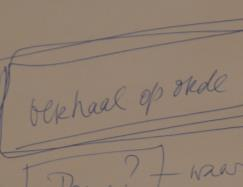 verhaal op orde
? → waar